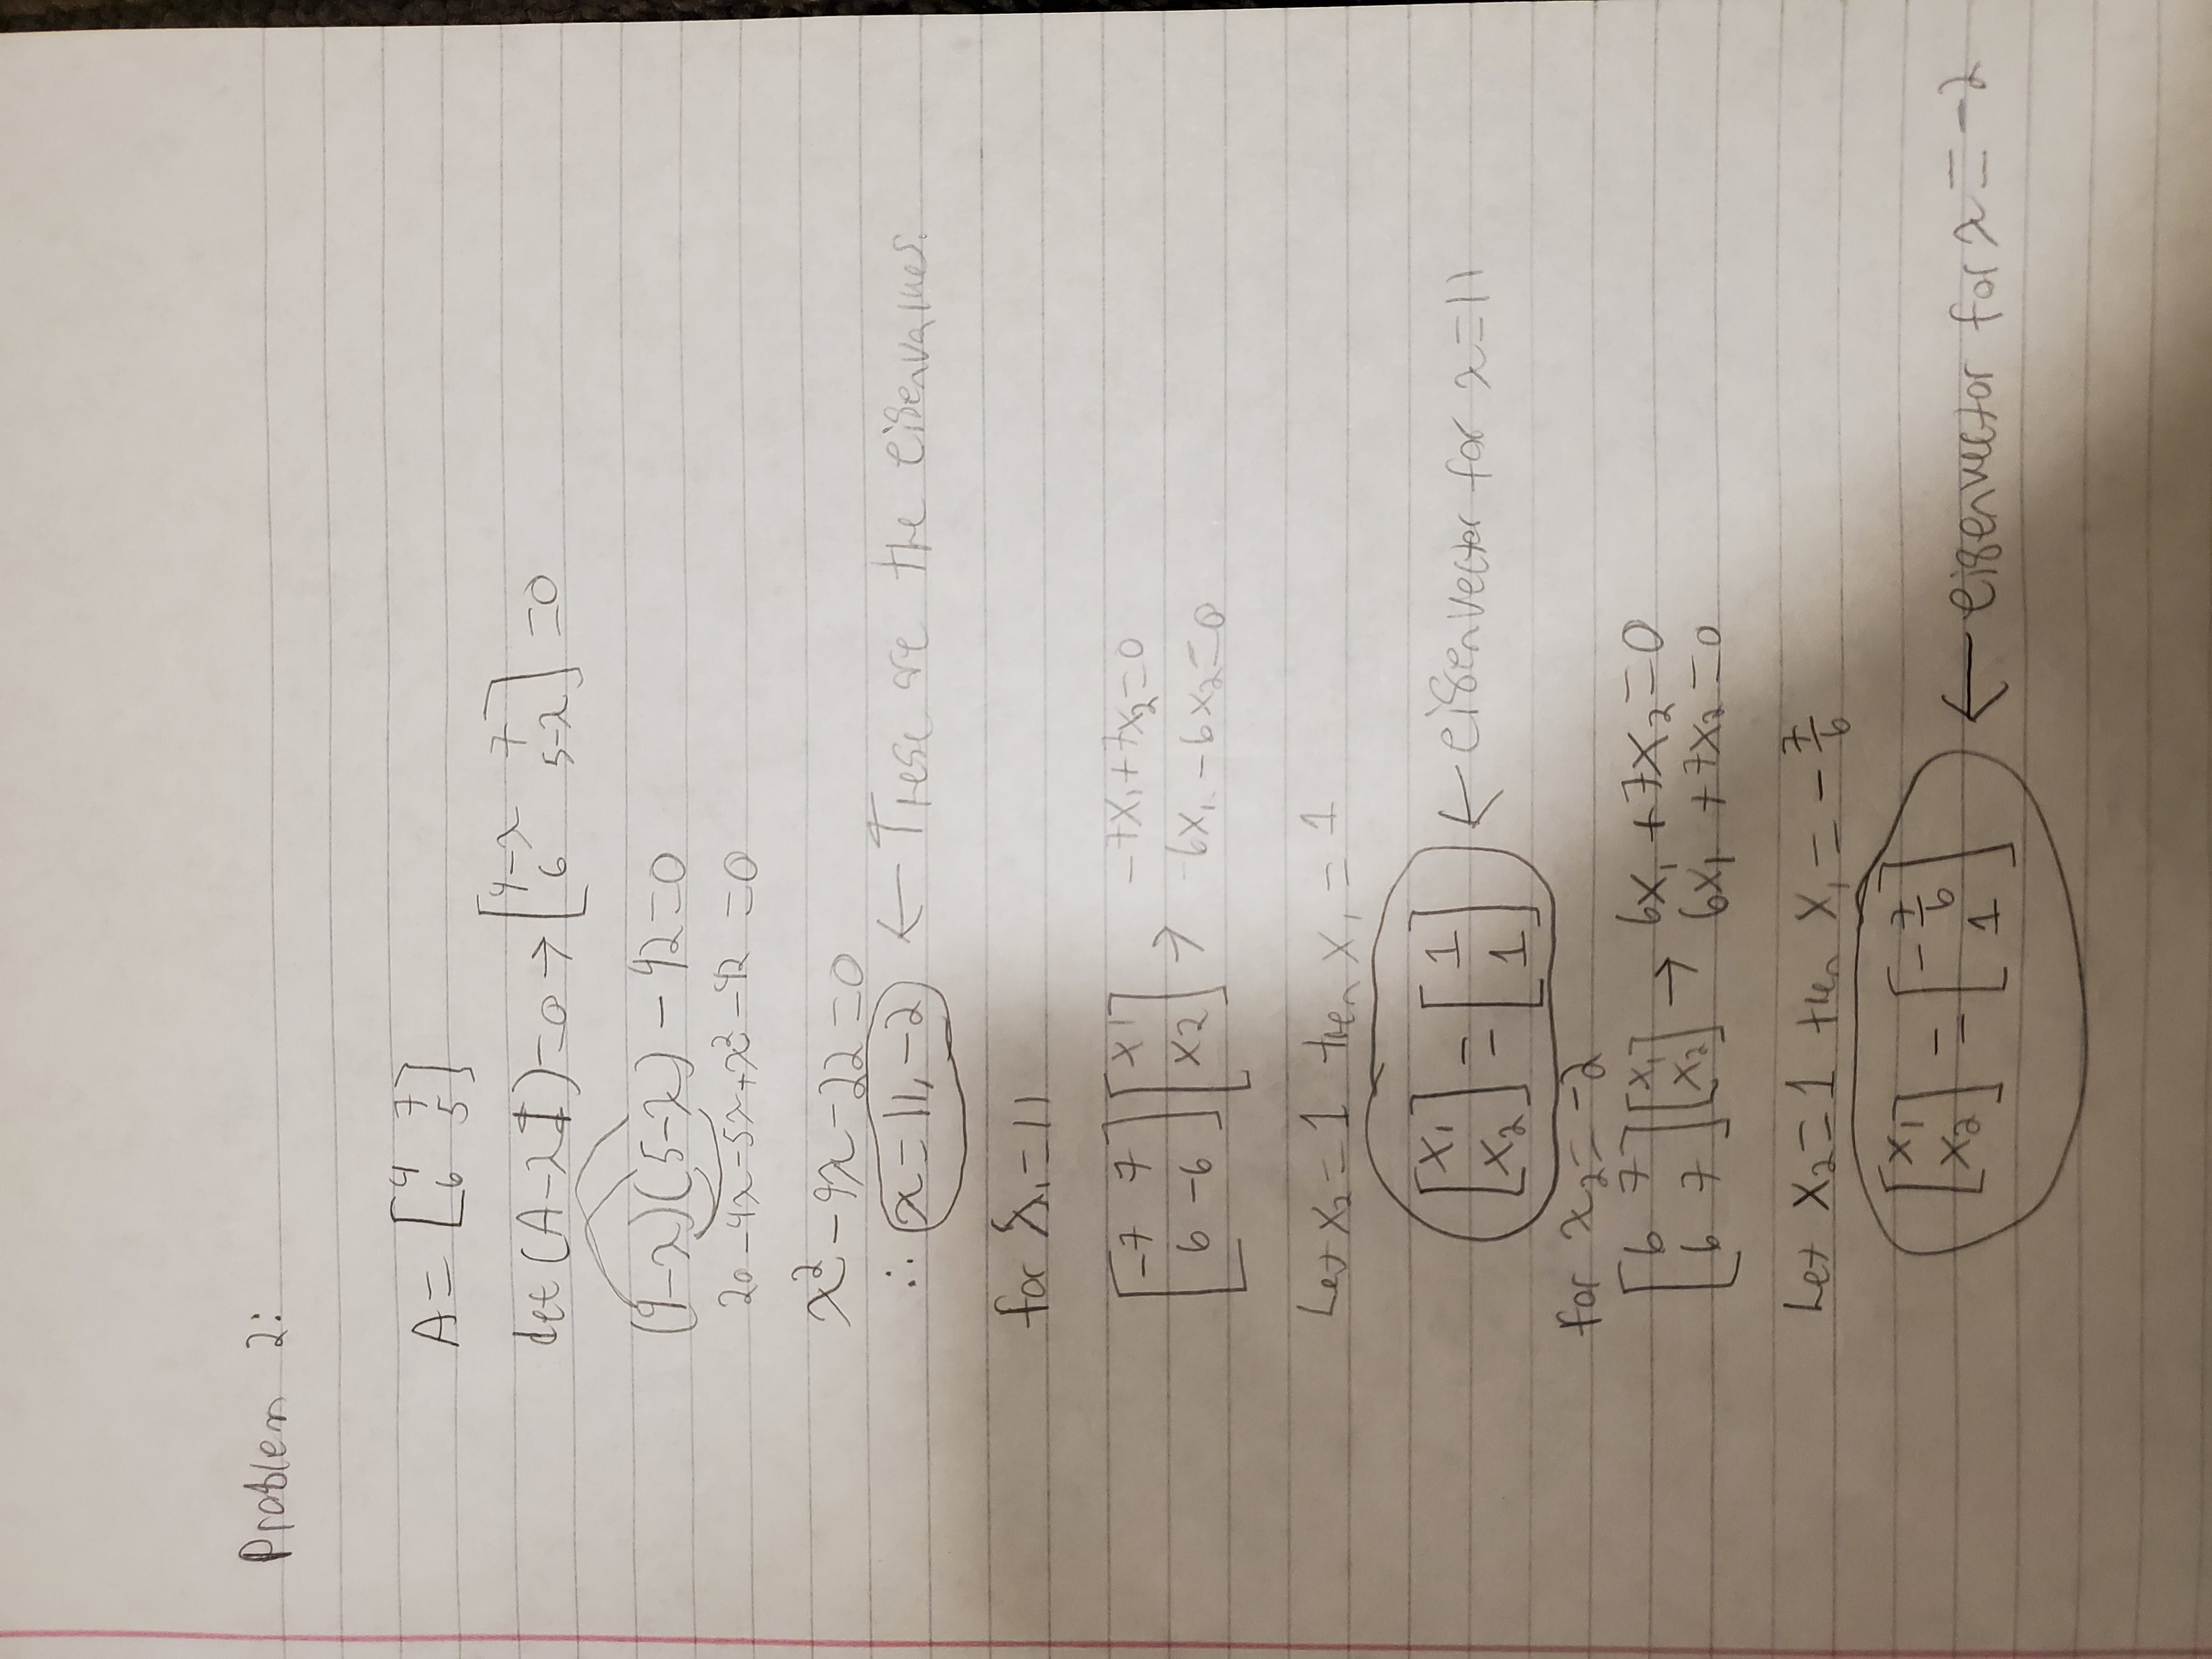 Problem 2:
A = [4 7
6 5]
det(A-λI)=0 → [4-λ 7
6 5-λ] =0
(4-λ)(5-λ) - 42=0
20 -4λ-5λ+λ² -42 =0
λ² -9λ-22=0
∴ λ=11, -2 ← These are the eigenvalues.
for λ₁=11
[-7 7
6 -6] [x1
x2] → -7x₁+7x₂=0
6x₁ -6x₂=0
Let x₂=1 then x₁ = 1
[x₁
x₂] = [1
1] ← eigenvector for λ=11
for λ₂=-2
[6 7
6 7] [x₁
x₂] → 6x₁ +7x₂=0
6x₁ +7x₂=0
Let x₂=1 then x₁ = -7/6
[x₁
x₂] = [-7/6
1] ← eigenvector for λ=-2